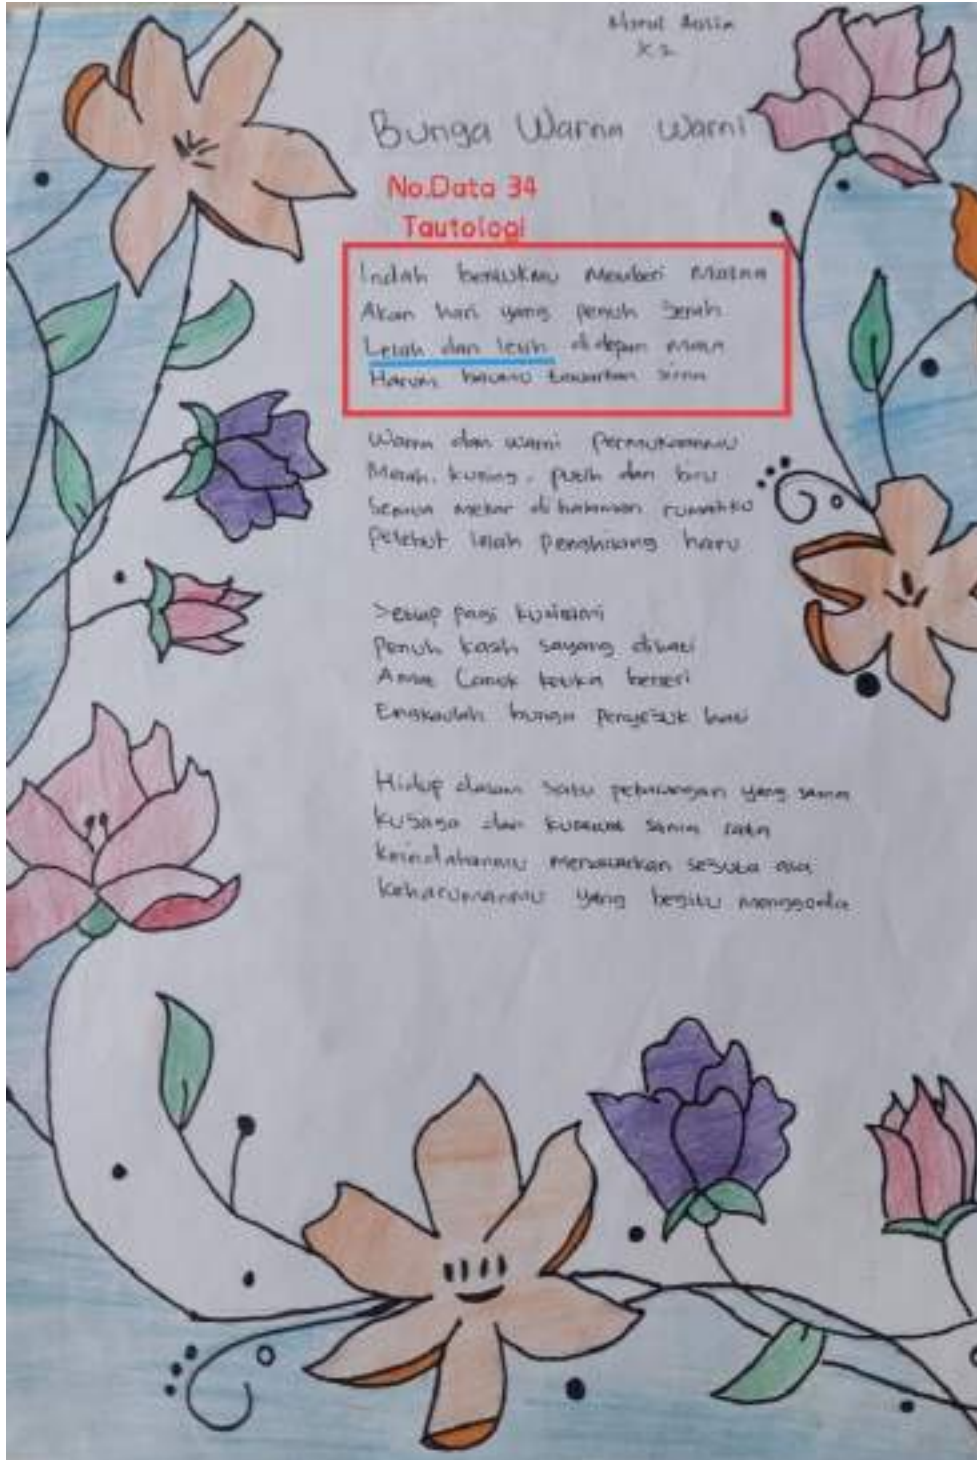 X2
Bunga Warna Warni
No.Data 34
Tautologi
Indah bentukmu memberi makna
Akan hari yang penuh jerah
Lelah dan letih didepan mata
Harum baumu tawarkan
Warna dan warni permukaanmu
Merah, kuning, putih dan biru
Semua mekar dihalaman rumahku
Pelebut lelah penghilang haru
Setiap pagi kusirami
Penuh kasih sayang dihati
Amat Cantik ketika berseri
Engkaulah bunga penyejuk hati
Hidup dalam satu pekarangan yang sama
Kujaga dan kurawat sama rata
Keindahanmu menawarkan sejuta asa
Keharumanmu yang begitu menggoda